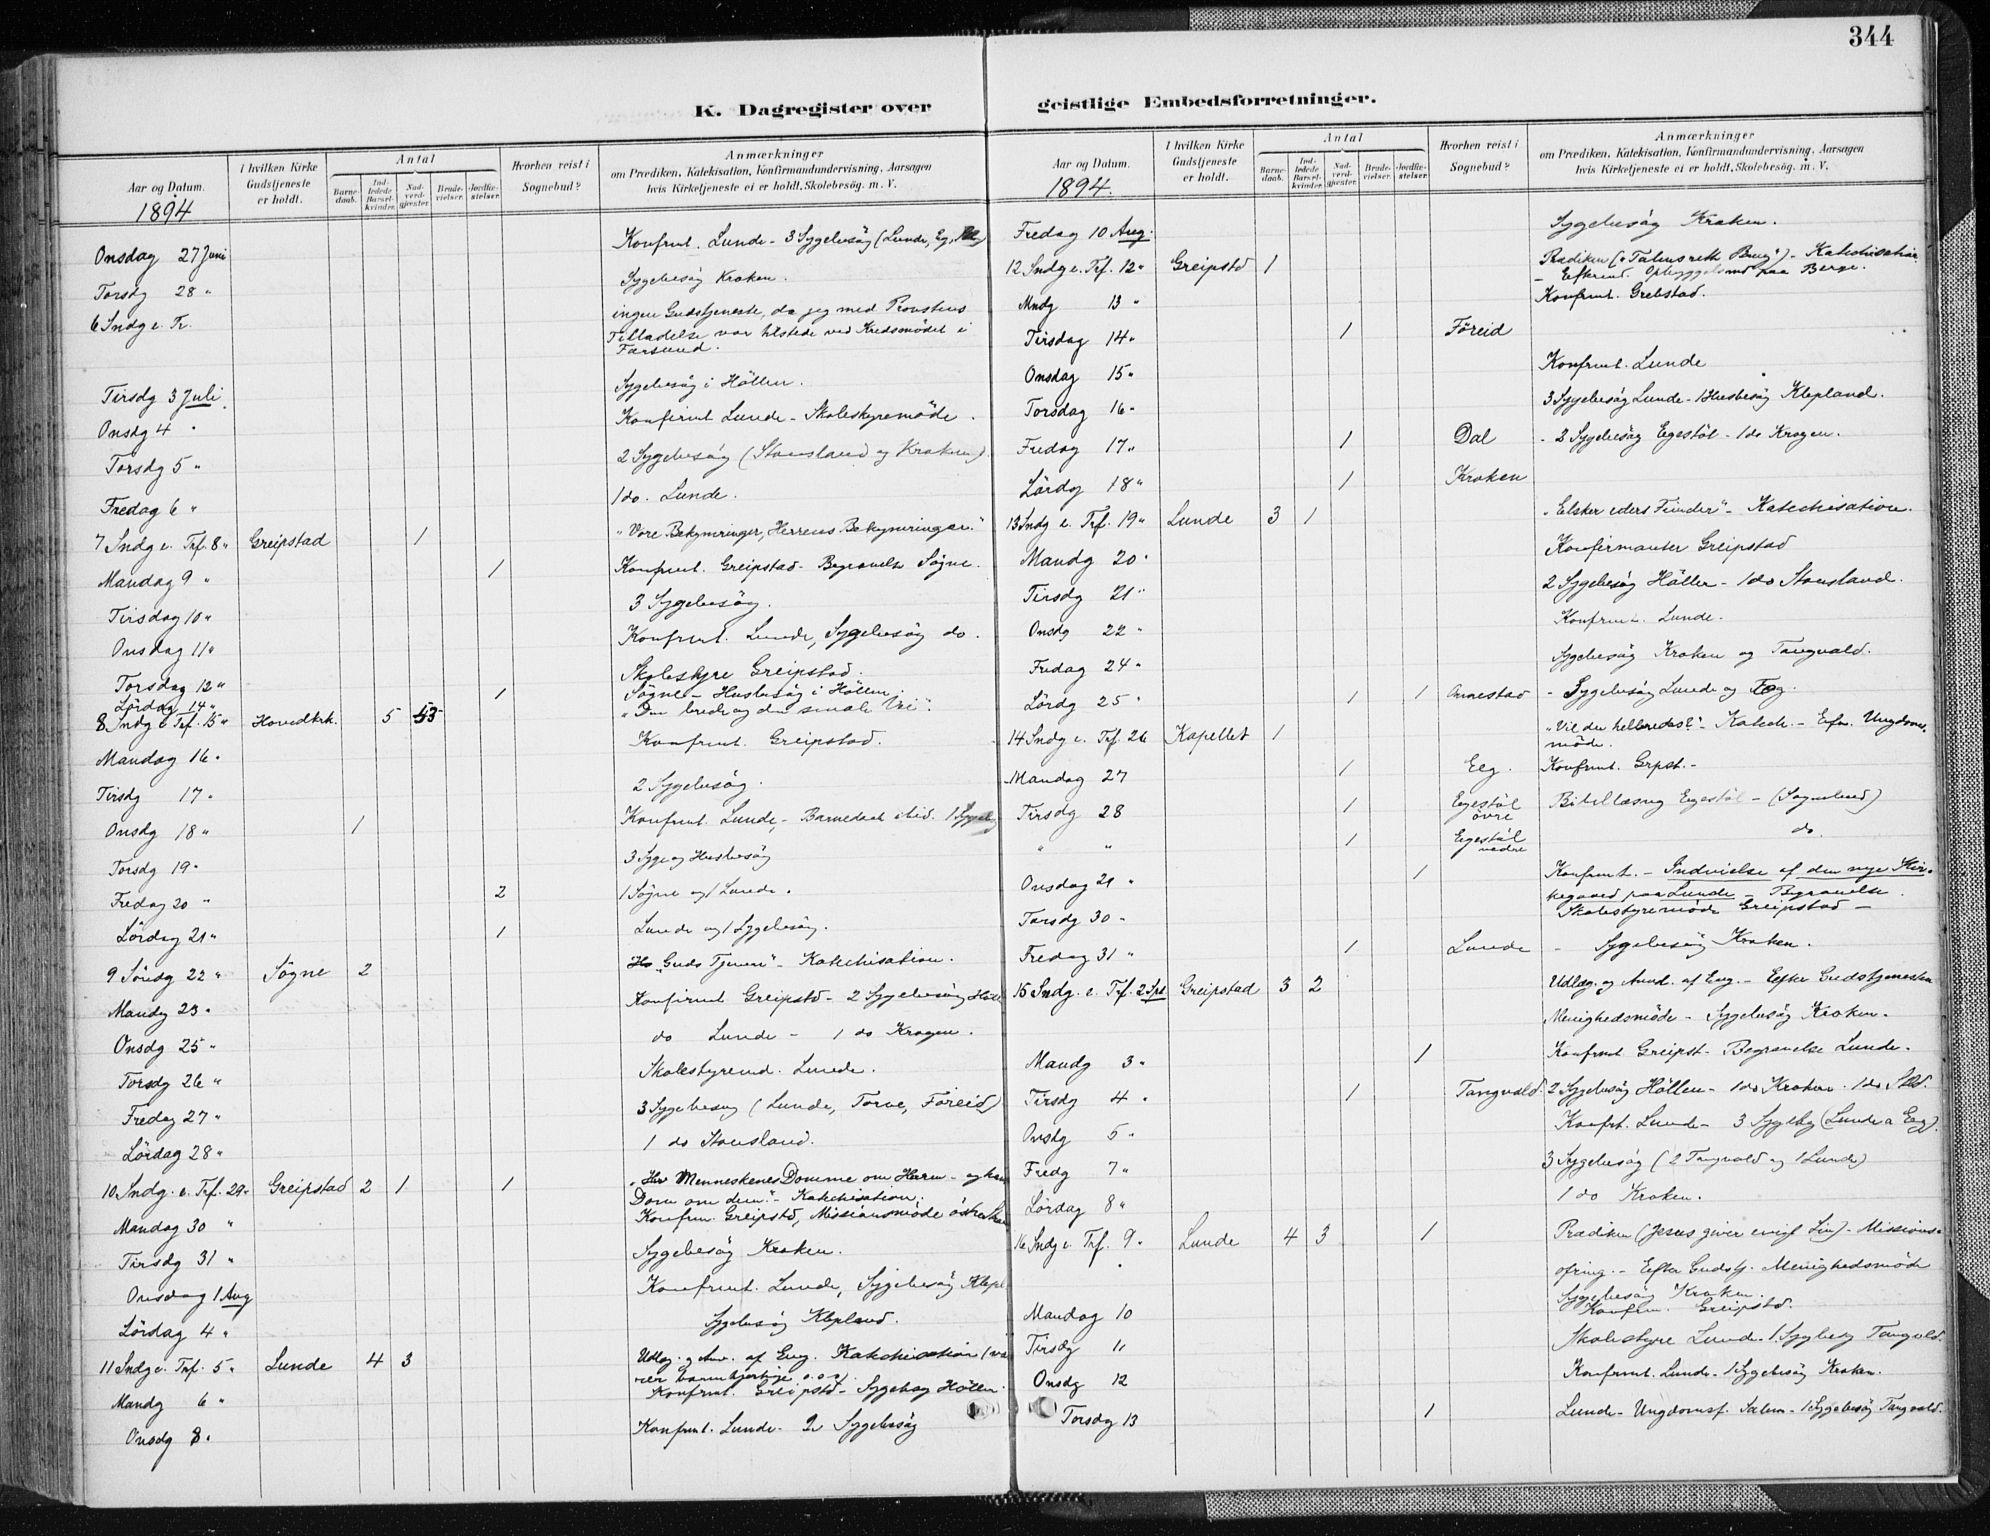 344
K. Dagregister over geistlige Embedsforretninger.
Aar og Datum.
1894
I hvilken Kirke Gudstjeneste er holdt.
Antal
Barnedaab.
Indledede Barselkvinder.
Nadverdgjester.
Brudevielser.
Jordfæstelser.
Hvorhen reist i Sognebud?
Anmærkninger
om Prædiken, Katekisation, Konfirmandundervisning, Aarsagen
hvis Kirketjeneste ei er holdt, Skolebesøg. m. V.
Onsdag 27 Juni Konfrmt. Lunde - 3 Sygebesøg (Lunde, Eg,
Torsdg 28 " Sygebesøg Kroken.
6 Sndg e. Tr. ingen Gudstjeneste, da jeg med Provstens
Tilladelse var tilstede ved Kredsmødet i
Farsund.
Tirsdg 3 Juli Sygebesøg i Höllen.
Onsdg 4 " Konfirmt Lunde - Skolestyremöde.
Torsdg 5 " 2 Sygebesøg (Stousland og Kroken)
Fredag 6 " 1 do. Lunde.
7 Sndg e. Trf. 8 " Greipstad 1 "Vore Bekymringer, Herrens Bekymringer."
Mandag 9 " 1 Konfrmt. Greipstad - Begravelse Søgne.
Tirsdag 10 " 3 Sygebesøg.
Onsdag 11 " Konfrmt. Lunde, Sygebesøg do.
Torsdag 12 " Skolestyre Greipstad.
Lördag 14 " 1 Søgne - Husbesøg i Höllen.
8 Sndg e Trf. 15 " Hovedkrk. 5 53 "Den brede og den smale Vei".
Mandag 16 " Konfrmt. Greipstad.
Tirsdg 17 " 2 Sygebesøg.
Onsdg 18 " 1 Konfrmt. Lunde, - Barnedaab 1 Sygebsg
Torsdg 19 " 3 Syge og Husbesøg
Fredag 20 " 2 1 Søgne og 1 Lunde.
Lördag 21 " 1 Lunde og 1 Sygebesøg.
9 Söndg 22 " Søgne 2 "Guds Tjener" - Katekisation.
Mandg 23 " Konfirmt Greipstd - 2 Sygebesøg Höll
Onsdg 25 " do Lunde - 1 do Krogen.
Torsdg 26 " Skolestyremd. Lunde.
Fredag 27 " 3 Sygebesøg (Lunde, Torve, Föreid)
Lördag 28 " 1 do Stousland.
10 Sndg. e. Trf. 29 " Greipstad 2 1 1 Menneskenes Domme om Herren - og hans
Dom om dem." - Katekisation.
Mandag 30 " Konfrm. Greipstd, Missionsmöde
Tirsdg 31 " Sygebesøg Kroken.
Onsdag 1 Aug Konfrmt. Lunde, Sygebesøg Klepl
Lördag 4 " Sygebesøg Klepland.
11 Sndg e. Trf. 5 " Lunde 4 3 Udlæg. og Anv. af Evg. Katekisation (væ
rer barmhjertige o.s.v.)
Mandg 6 " Konfrmt. Greipstd - Sygebsg Höllen.
Onsdg 8 " Konfrmt. Lunde - 2 Sygebesøg
Aar og Datum.
1894
I hvilken Kirke Gudstjeneste er holdt.
Antal
Barnedaab.
Indledede Barselkvinder.
Nadverdgjester.
Brudevielser.
Jordfæstelser.
Hvorhen reist i Sognebud?
Anmærkninger
om Prædiken, Katekisation, Konfirmandundervisning, Aarsagen
hvis Kirketjeneste ei er holdt, Skolebesøg. m. V.
Fredag 10 Aug. Sygebesøg Kroken.
12 Sndg e. Trf. 12 " Greipstd 1 Prædiken ("Talens rette Brug") - Katechisation
- Eftermd. Opbyggelsmd paa Berge.
Mndg 13 " Konfrmt. Grebstad.
Tirsdag 14 " 1 Föreid
Onsdag 15 " Konfrmt. Lunde
Torsdag 16 " 3 Sygebesøg Lunde - 1 Husbesøg Klepland.
Fredag 17 " 1 Dal - 2 Sygebesøg Egestöl - 1 do Krogen.
Lördg 18 " 1 Kroken
13 Sndg e. Trf. 19 " Lunde 3 1 "Elsker eders Fiender" - Katechisation.
Mandg 20 " Konfirmanter Greipstad
Tirsdg 21 " 2 Sygebesøg Höllen - 1 do Stousland.
Onsdg 22 " Konfrmt. Lunde.
Fredag 24 " Sygebesøg Kroken og Tangvald.
Lördg 25 " 1 1 Aunestad - Sygebesøg Lunde og Eeg.
14 Sndg e. Trf. 26 Kapellet 1 "Vil du helbredes?" - Katech. - Efm. Ungdoms-
möde.
Mandag 27 1 Eeg. Konfrmt. Grpst. -
Tirsdg 28 1 Egestöl övre Bibellæsng Egestöl - (Sognebud)
" " 1 Egestöl nedre do.
Onsdag 29 " 1 Konfrmt. - Indvielse af den nye Kir-
kegaard paa Lunde - Begravelse.
Torsdg 30 " Skolestyremöde Greipstad -
Fredag 31 " 1 Lunde - Sygebesøg Kroken.
15 Sndg. e. Trf. 2 Spt Greipstad 3 2 Udlæg. og Anvd. af Evg. - Efter Gudstjenesten
Menighedsmöde - Sygebesøg Kroken.
Mandg 3 " 1 Konfrmt Greipst - Begravelse Lunde.
Tirsdg 4 " 1 Tangvald. 2 Sygebesøg Höllen - 1 do Kroken - 1 do
Onsdg 5 " Konfrt. Lunde - 3 Sygebsg (Lunde a Eeg).
Fredg 7 " 3 Sygebesøg (2 Tangvald og 1 Lunde)
Lördag 8 " 1 do Kroken.
16 Sndg e. Trf. 9 " Lunde 4 3 1 Prædiken (Jesus giver evigt Liv) - Missions-
ofring. - Efter Gudstj. Menighedsmöde
Sygebesøg Kroken.
Mandag 10 Konfrm. Greipstd.
Tirsdg 11 Skolestyre Lunde - 1 Sygbesg Tangvald.
Onsdg 12 Konfrmt. Lunde - 1 Sygebesøg Kroken.
Torsdg 13 1 Lunde - Ungdomsf. Salem - 1 Sygebesøg Tangvald.